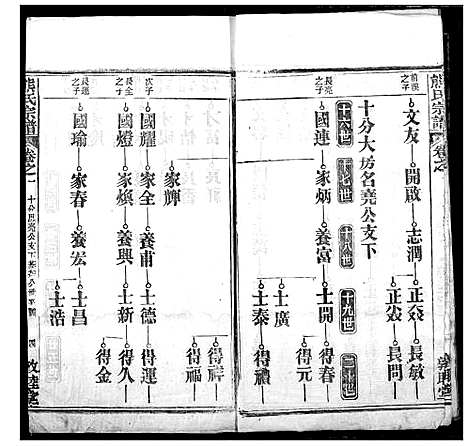 熊氏宗譜
卷之
前漠之子
文友 開啟 志潤 正焱 長敏
正炎 長問
十分大房名堯公支下
十六世 十七世 十八世 十九世 二十世
長亮之子
國連 家炳 養富 士開 得春
得元
士廣
士泰 得禮
家輝
得祥
得福
次子
國耀 家全 養甫 士德 得運
長全之子
國燈 家煥 養興 士新 得久
得金
長運之子
國瑜 家春 養宏 士昌
士浩
熊氏宗譜
卷之一
四
敦睦堂